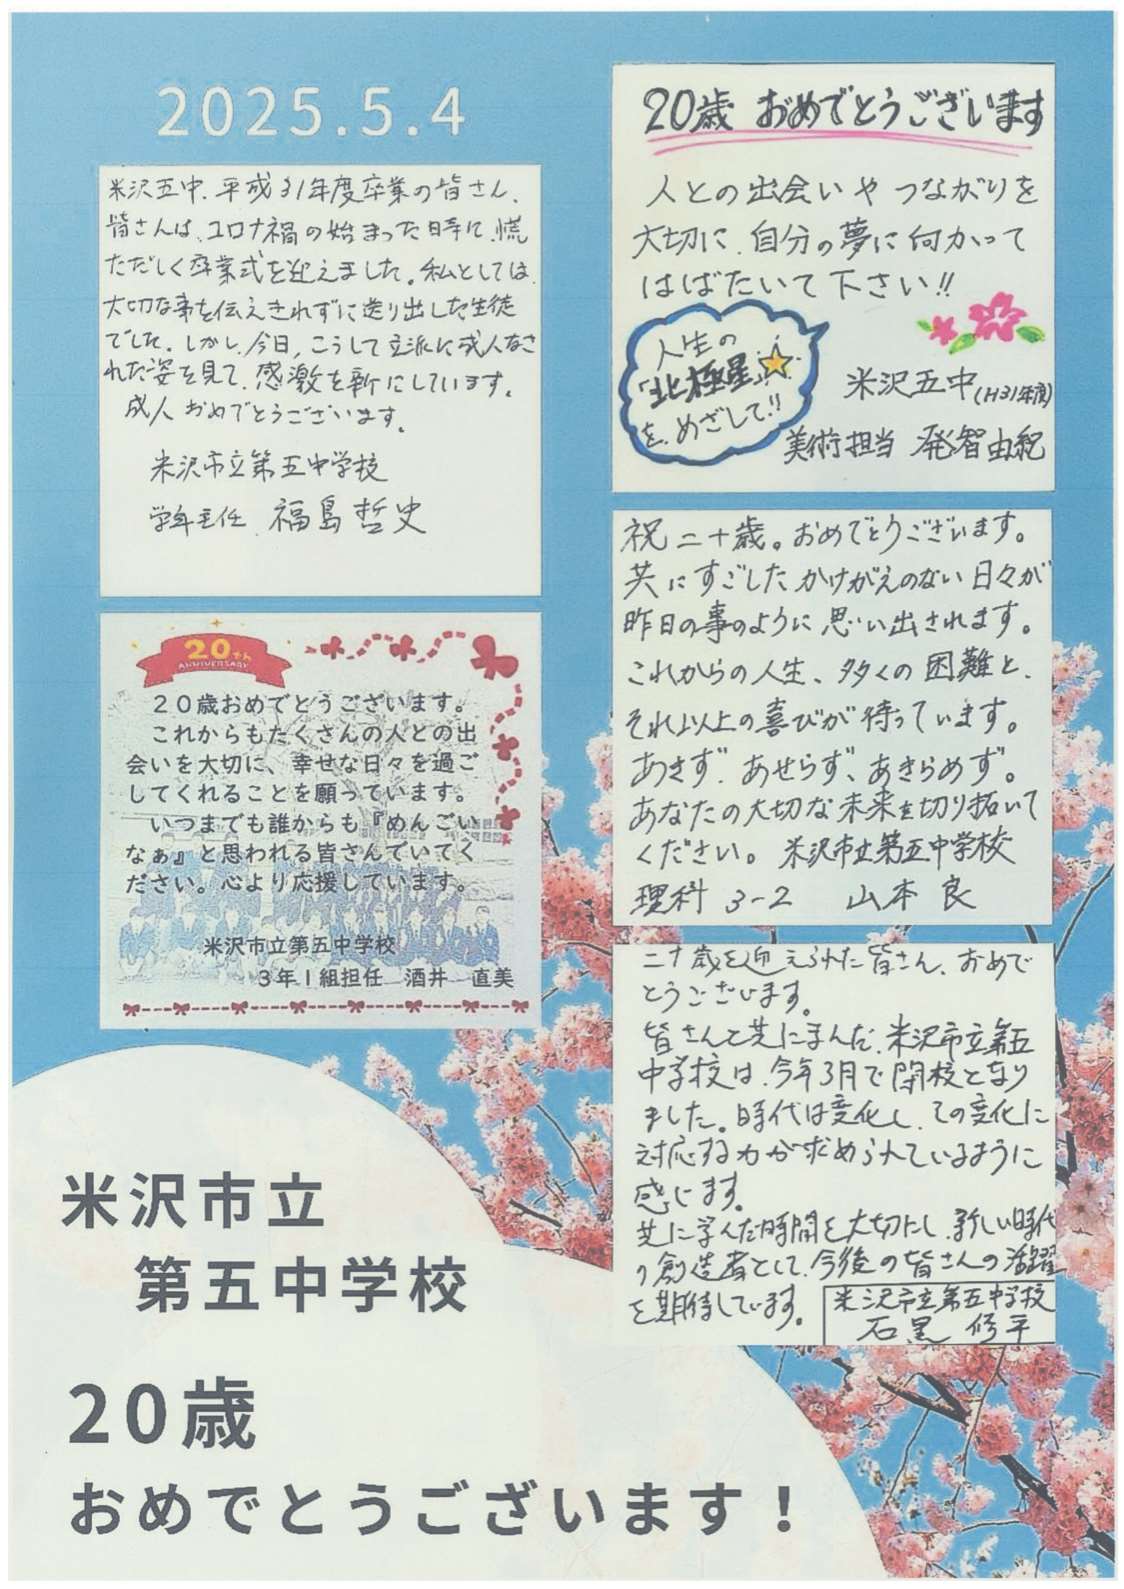 2025.5.4
米沢五中、平成31年度卒業の皆さん、
皆さんは、コロナ禍の始まった時に、慌
ただしく卒業式を迎えました。私としては、
大切な事を伝えきれずに送り出した生徒
でした。しかし、今日、こうして立派に成人なさ
れた姿を見て、感激を新にしています。
成人おめでとうございます。
米沢市立第五中学校
学年主任 福島哲史
20th
ANNIVERSARY
20歳おめでとうございます。
これからもたくさんの人との出
会いを大切に、幸せな日々を過ご
してくれることを願っています。
いつまでも誰からも『めんごい
なぁ』と思われる皆さんでいてく
ださい。心より応援しています。
米沢市立第五中学校
3年1組担任 酒井 直美
20歳 おめでとうございます
人との出会いや つながりを
大切に、自分の夢に向かって
はばたいて下さい!!
人生の
「北極星」
を、めざして!!
米沢五中(H31年度)
美術担当 発智由紀
祝二十歳。おめでとうございます。
共にすごしたかけがえのない日々が
昨日の事のように思い出されます。
これからの人生、多くの困難と、
それ以上の喜びが待っています。
あきず、あせらず、あきらめず。
あなたの大切な未来を切り抜いて
ください。 米沢市立第五中学校
理科 3-2 山本 良
二十歳を迎えられた皆さん、おめで
とうございます。
皆さんと共に学んだ、米沢市立第五
中学校は、今年3月で閉校となり
ました。時代は変化し、その変化に
対応する力が求められているように
感じます。
共に学んだ時間を大切にし、新しい時代
の創造者として、今後の皆さんの活躍
を期待しています。
米沢市立第五中学校
石黒 修平
米沢市立
第五中学校
20歳
おめでとうございます！